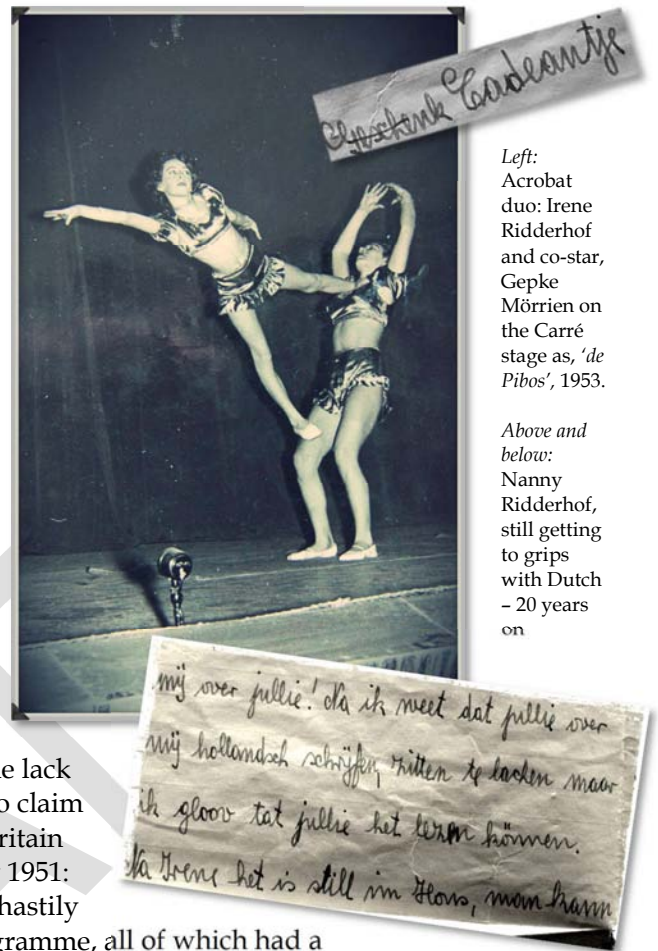 Geschenk Cadeantje
Left:
Acrobat
duo: Irene
Ridderhof
and co-star,
Gepke
Mörrien on
the Carré
stage as, ‘de
Pibos’, 1953.
Above and
below:
Nanny
Ridderhof,
still getting
to grips
with Dutch
– 20 years
on
mij over jullie! Na ik weet dat jullie over
mij hollandsch schrijfen, zitten te lachen maar
ik gloov tat jullie het lezen können.
Na Irene het is still im Hous, man kann
e lack
o claim
ritain
1951:
hastily
gramme, all of which had a